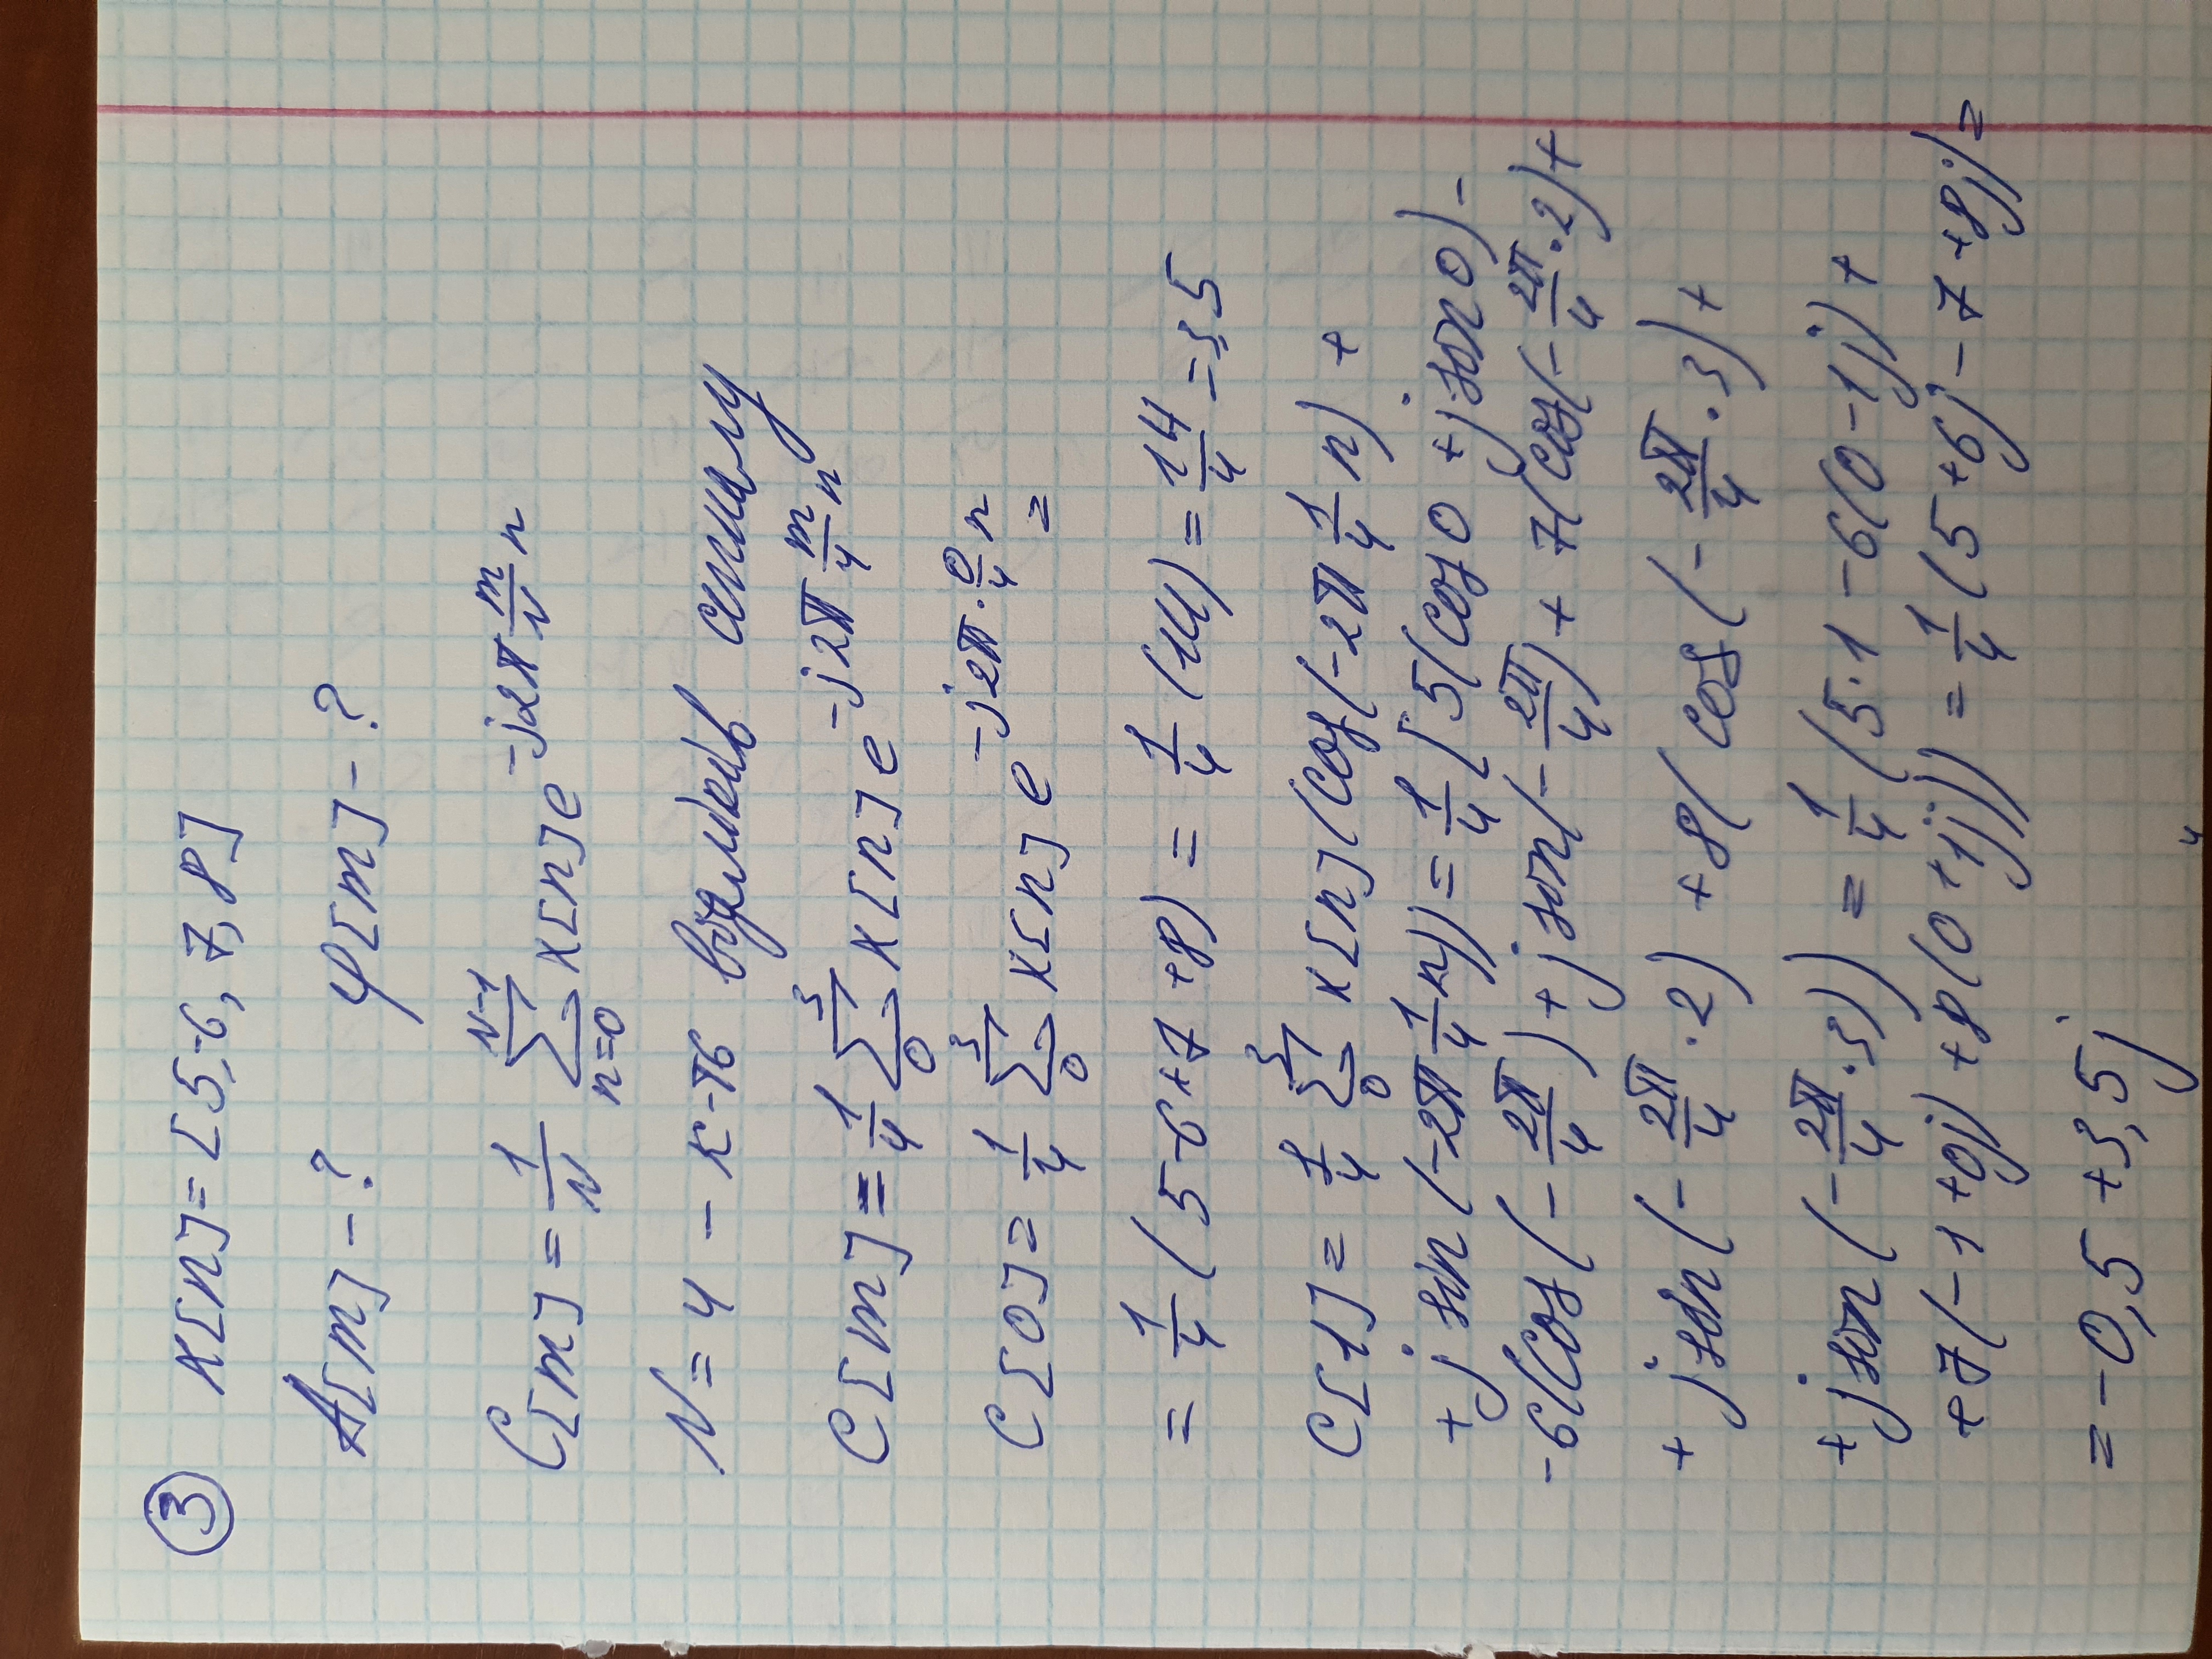 ③ x[n] = [5, -6, 7, 8]
A[m] - ? φ[m] - ?
C[m] = \frac{1}{N} \sum_{n=0}^{N-1} x[n] e^{-j2π\frac{m}{N}n}
N = 4 - к-ть відліків сигналу
C[m] = \frac{1}{4} \sum_{0}^{3} x[n] e^{-j2π\frac{m}{4}n}
C[0] = \frac{1}{4} \sum_{0}^{3} x[n] e^{-j2π·\frac{0}{4}n} =
= \frac{1}{4} (5 - 6 + 7 + 8) = \frac{1}{4} (14) = \frac{14}{4} = 3,5
C[1] = \frac{1}{4} \sum_{0}^{3} x[n] (cos(-2π\frac{1}{4}n) +
+ j sin(-2π\frac{1}{4}n)) = \frac{1}{4} [5(cos 0 + j sin 0) -
- 6(cos(-\frac{2π}{4}) + j sin(-\frac{2π}{4}) + 7(cos(-\frac{2π}{4}·2) +
+ j sin(-\frac{2π}{4}·2) + 8(cos(-\frac{2π}{4}·3) +
+ j sin(-\frac{2π}{4}·3)) = \frac{1}{4} (5·1 - 6(0 - 1j) +
+ 7(-1 + 0j) + 8(0 + 1j)) = \frac{1}{4} (5 + 6j - 7 + 8j) =
= -0,5 + 3,5j
4